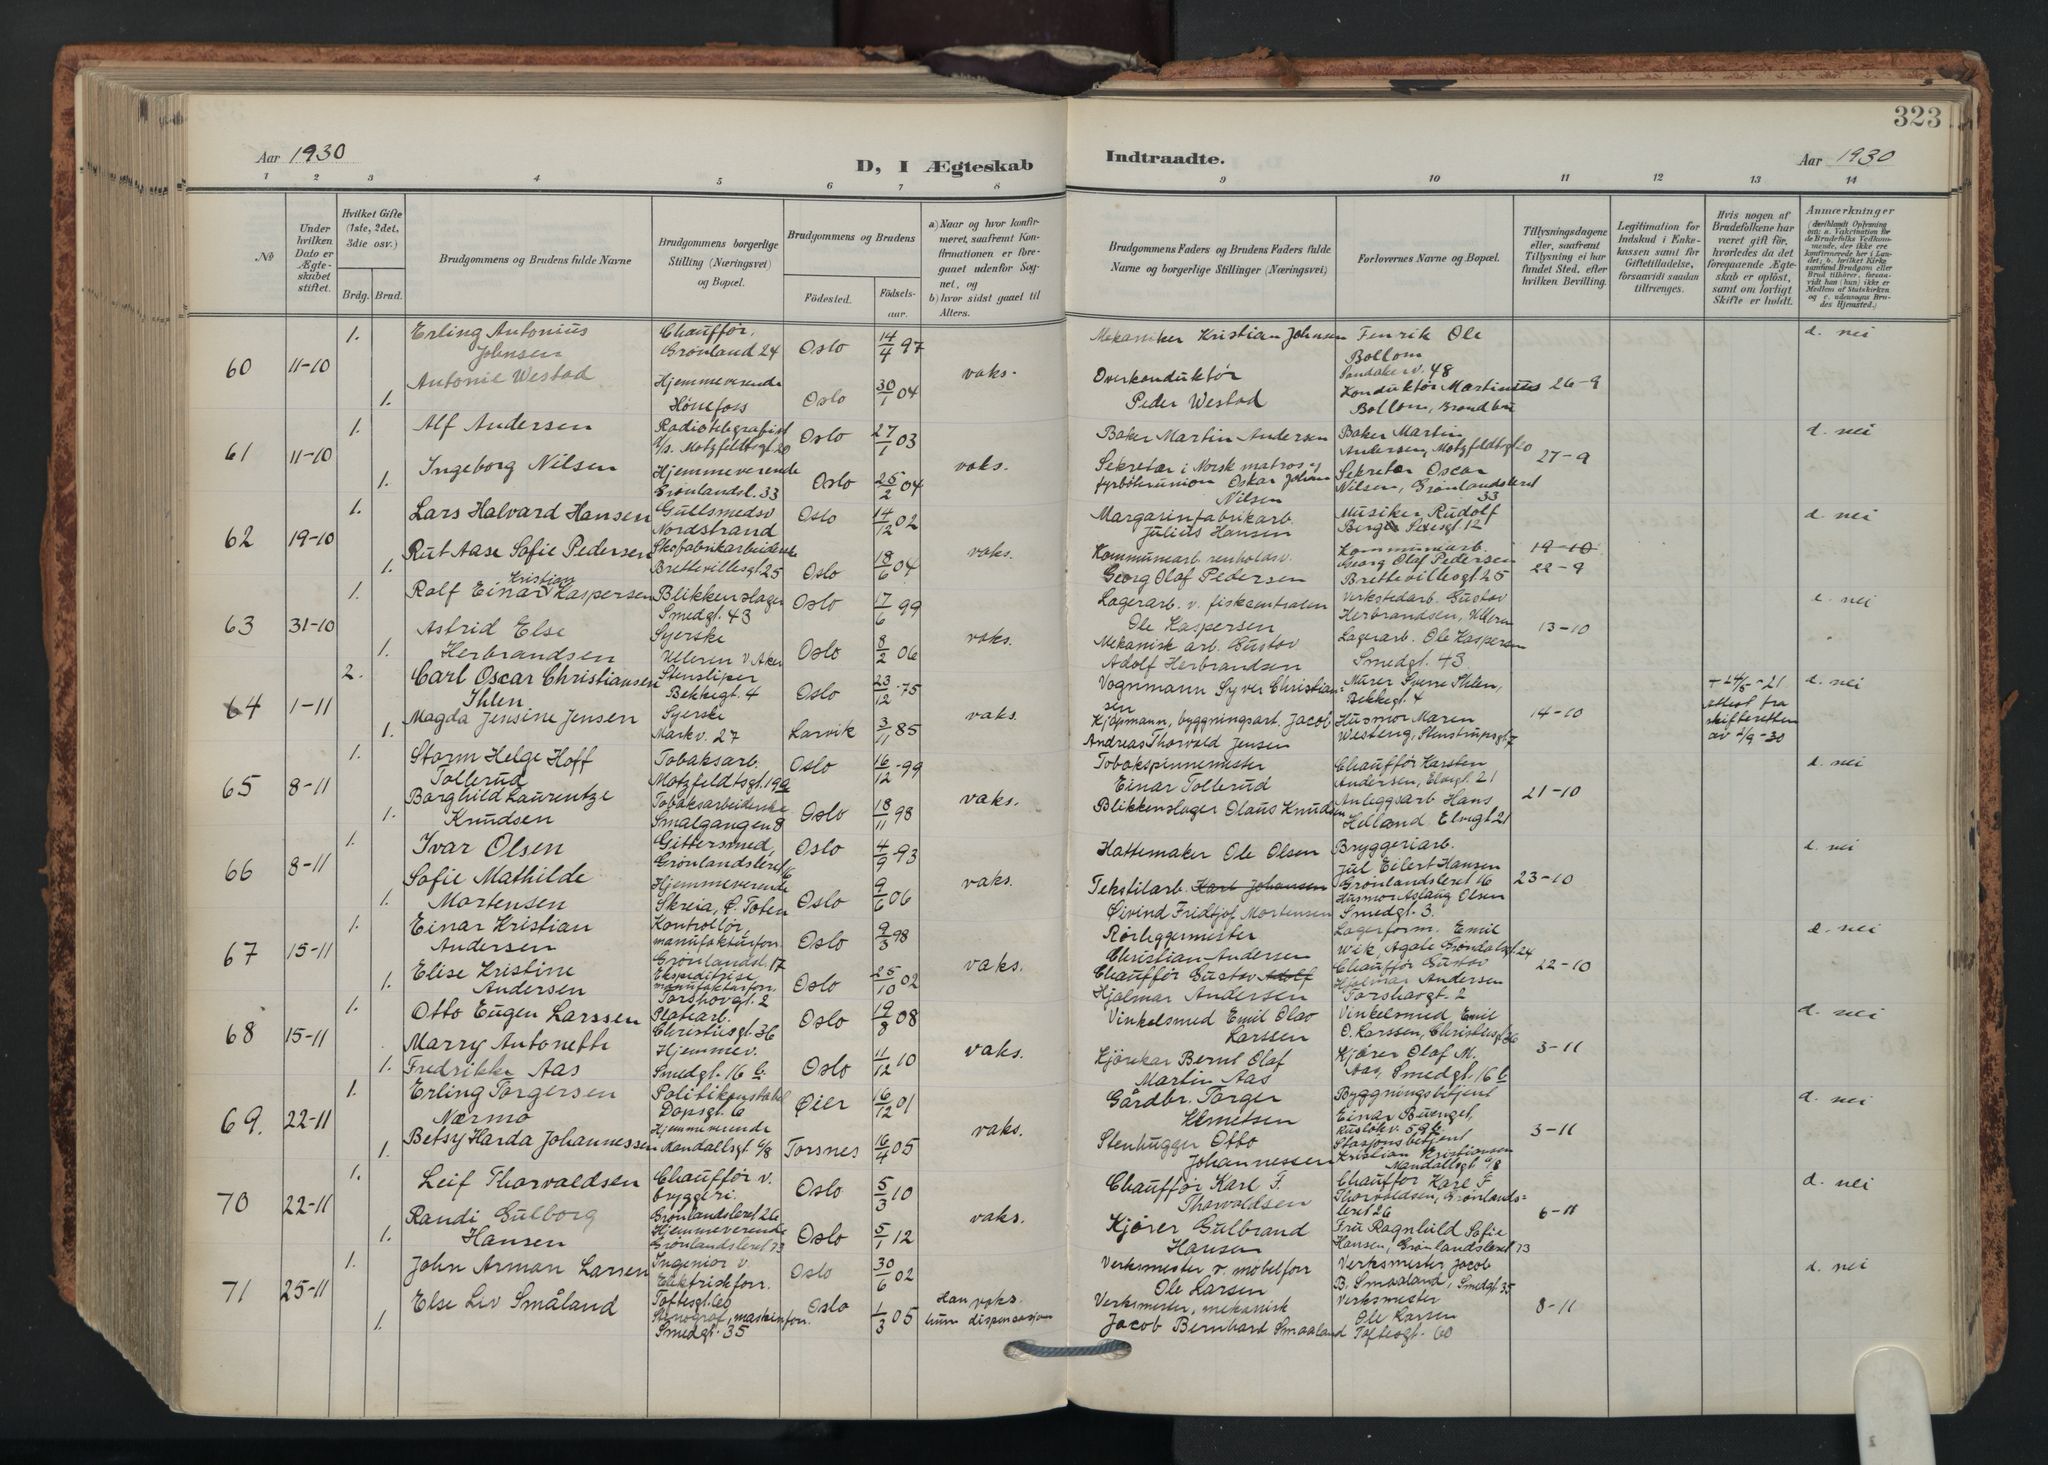 323
Aar 1930
D, I Ægteskab
Indtraadte.
Aar 1930
1 2 3 4 5 6 7 8 9 10 11 12 13 14
No
Under hvilken Dato er Ægteskabet stiftet.
Hvilket Gifte (1ste, 2det, 3die osv.)
Brdg. Brud.
Brudgommens og Brudens fulde Navne
Brudgommens borgerlige Stilling (Næringsvei) og Bopæl.
Brudgommens og Brudens
Fødested. Fødselsaar.
a) Naar og hvor konfirmeret, saafremt Konfirmationen er foregaaet udenfor Sognet, og
b) hvor sidst gaaet til Alters.
Brudgommens Faders og Brudens Faders fulde Navne og borgerlige Stillinger (Næringsvei)
Forlovernes Navne og Bopæl.
Tillysningsdagene eller, saafremt Tillysning ei har fundet Sted, efter hvilken Bevilling.
Legitimation for Indskud i Enkekassen samt for Giftetilladelse, forsaavidt saadan tiltrænges.
Hvis nogen af Brudefolkene har været gift før, hvorledes da det foregaaende Ægteskab er opløst, samt om lovligt Skifte er holdt.
Anmærkninger
60 11-10
1. Erling Antonius Johnsen
Chauffør, Grønland 24
Oslo 14/4 97
Mekaniker Kristian Johnsen
Fenrik Ole Bollom Sandakerv. 48
d. nei
1. Antonie Westad
Hjemmeverende Hønefoss
Oslo 30/1 04
vaks.
Overkonduktør Peder Westad
Konduktør Martinius Bollom, Brandbu
26-9
61 11-10
1. Alf Andersen
Radiotelegrafist Motzfeldtsgt 20
Oslo 27/1 03
Baker Martin Andersen
Baker Martin Andersen, Motzfeldtsgt 20
d. nei
1. Ingeborg Nilsen
Hjemmeverende Grønlandsl. 33
Oslo 25/2 04
vaks.
Sekretær i Norsk matros- og fyrbøterunion Oskar Johan Nilsen
Sekretær Oscar Nilsen, Grønlandsleret 33
27-9
62 19-10
1. Lars Halvard Hansen
Gullsmedsv Nordstrand
Oslo 14/12 02
Margarinfabrikarb. Julius Hansen
Musiker Rudolf Berg
d. nei
1. Rut Aase Sofie Pedersen
Skofabrikarbeiderske Brettevillesgt 25
Oslo 18/6 04
vaks.
Kommunearb. renholdsv. Georg Olaf Pedersen
Kommunearb. Georg Olaf Pedersen Brettevillesgt 25
19-10
22-9
63 31-10
1. Rolf Einar Kristian Kaspersen
Blikkenslager Smedgt. 43
Oslo 17/6 99
Lagerarb. v. fiskcentralen Ole Kaspersen
Verkstedarb. Gustav Herbrandsen, Ulleren
d. nei
1. Astrid Else Herbrandsen
Syerske Ulleren v. Aker
Oslo 8/2 06
vaks.
Mekanisk arb. Gustav Adolf Herbrandsen
Lagerarb. Ole Kaspersen Smedgt. 43
13-10
64 1-11
2. Carl Oscar Christiansen Ihlen
Stensliper Bekkegt. 4
Oslo 23/12 -75
Vognmann Syver Christiansen
Murer Sverre Ihlen, Bekkegt. 4
+ 24/5 -21 attest fra skifteretten av 2/9 -30
d. nei
1. Magda Jensine Jensen
Syerske Markv. 27
Larvik 3/11 85
vaks.
Kjøpmann, byggningsarb. Jacob Andreas Thorvald Jensen
Husmor Maren Westeng, Stenstrupsgt 7
14-10
65 8-11
1. Storm Helge Hoff Tollerud
Tobaksarb. Motzfeldtsgt 19
Oslo 16/12 -99
Tobakspinnemester Einar Tollerud
Chauffør Karsten Andersen, Elvegt. 21
d. nei
1. Borghild Laurentze Knudsen
Tobaksarbeiderske Smalgangen 8
Oslo 18/11 98
vaks.
Blikkenslager Olaus Knudsen
Anleggsarb Hans Helland Elvegt 21
21-10
66 8-11
1. Ivar Olsen
Gittersmed, Grønlandsleret 16
Oslo 4/9 -93
Hattemaker Ole Olsen
Bryggeriarb. Jul Eilert Hansen Grønlandsleret 16
d. nei
1. Sofie Mathilde Mortensen
Hjemmeverende Skreia, Ø. Toten
Oslo 9/6 06
vaks.
Tekstilarb. Karl Johansen Øivind Fridtjof Mortensen
Husmor Aslaug Olsen Smedgt. 3.
23-10
67 15-11
1. Einar Kristian Andersen
Kontrollør, manufakturforr. Grønlandsl. 17
Oslo 9/3 98
Rørleggermester Christian Andersen
Lagerform. Emil Wik, Agate Grøndalsgt 24
d. nei
1. Elise Kristine Andersen
Ekspeditrise manufakturforr. Torshovgt. 2
Oslo 25/10 02
vaks.
Chauffør Gustav Adolf Hjalmar Andersen
Chauffør Gustav Hjalmar Andersen Torshovgt. 2
22-10
68 15-11
1. Otto Eugen Larssen
Platearb. Christiesgt. 36
Oslo 19/8 08
Vinkelsmed Emil Olav Larssen
Vinkelsmed Emil O. Larssen, Christiesgt 36
d. nei
1. Marry Antonette Fredrikke Aas
Hjemmev. Smedgt. 16 b
Oslo 11/12 10
vaks.
Kjørekar Bernt Olaf Martin Aas
Kjører Olaf M. Aas, Smedgt. 16 b
3-11
69. 22-11
1. Erling Torgersen Nærmo
Politikonstabel Dopsgt. 6
Øier 16/12 01
Gårdbr. Torger
Byggningsbetjent Einar
d. nei
1. Betsy Harda Johannessen
Hjemmeverende Mandallsgt 4/8
Torsnes 16/4 05
vaks.
Stenhugger Otto Johannessen
Stasjonsbetjent Kristian Kristiansen Mandallsgt 4/8
3-11
70 22-11
1. Leif Thorvaldsen
Chauffør v. bryggeri. Grønlandsleret 26
Oslo 5/3 10
Chauffør Karl F. Thorvaldsen
Chauffør Karl F Thorvaldsen, Grønlandsleret 26
d. nei
1. Randi Gulborg Hansen
Hjemmeverende Grønlandsleret 73
Oslo 5/1 12
vaks.
Kjører Gulbrand Hansen
Fru Ragnhild Sofie Hansen, Grønlandsleret 73
6-11
71 25-11
1. John Arman Larsen
Ingeniør v. Elektriskforr. Toftesgt. 60
Oslo 30/6 02
Verksmester v. møbelforr Ole Larsen
Verksmester Jacob B. Smaaland, Smedgt. 35
d. nei
1. Else Liv Småland
Stenograf, maskinforr. Smedgt. 35
Oslo 1/3 05
Han vaks. hun dispensasjon
Verksmester, mekanisk Jacob Bernhard Smaaland
Verksmester Ole Larsen Toftesgt. 60
8-11